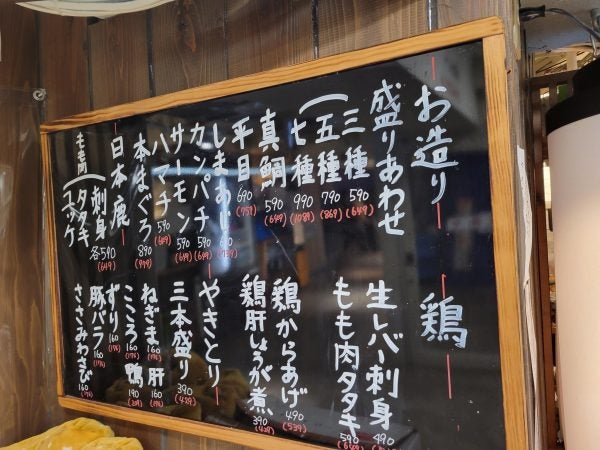 お造り
盛りあわせ
三種 590 (649)
五種 790 (869)
七種 990 (1089)
真鯛 590 (649)
平目 690 (759)
しまあじ 690 (759)
カンパチ 590 (649)
サーモン 590 (649)
ハマチ 590 (649)
本まぐろ 890 (979)
日本鹿
刺身
タタキ
ユッケ
各590 (649)
鶏
生レバー刺身 490
もも肉タタキ 590
鶏からあげ 490 (539)
鶏肝しょうが煮 390 (429)
やきとり
三本盛り 390 (429)
ねぎま 160 (176)
肝 160 (176)
こころ 160 (176)
鴨 190 (209)
ずり 160 (176)
豚バラ 160 (176)
ささみわさび 160 (176)